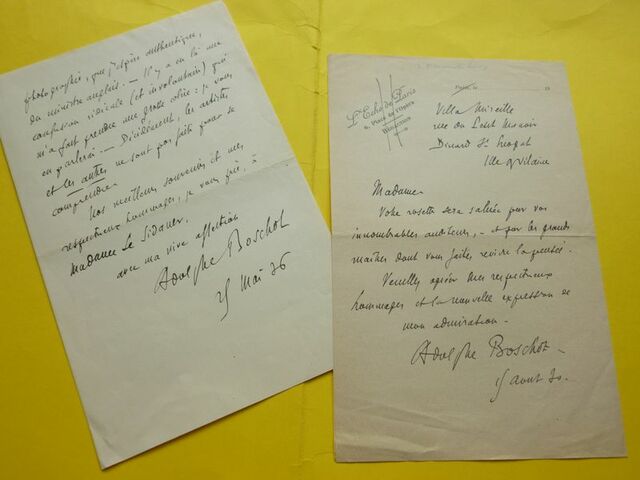 photographie, que j'espère authentique,
du ministre anglais. — Il y a eu là une
confusion ridicule (et involontaire) qui
m'a fait prendre une grosse colère : je vous
en parlerai — Décidément, les artistes
et les autres ne sont pas faits pour se
comprendre.
Nos meilleurs souvenirs et mes
respectueux hommages, je vous prie, à
Madame Le Sidaner,
avec ma vive affection
Adolphe Boschot
25 Mai 36
Paris, le 19
L'Echo de Paris
6, Place de l'Opéra
Villa Mireille
rue du Petit Manoir
Dinard St Enogat
Ille & Vilaine
Madame
Votre rosette sera saluée par vos
innombrables auditeurs, — et par les grands
maîtres dont vous faites revivre la pensée.
Veuillez agréer mes respectueux
hommages et la nouvelle expression de
mon admiration.
Adolphe Boschot
15 août 30